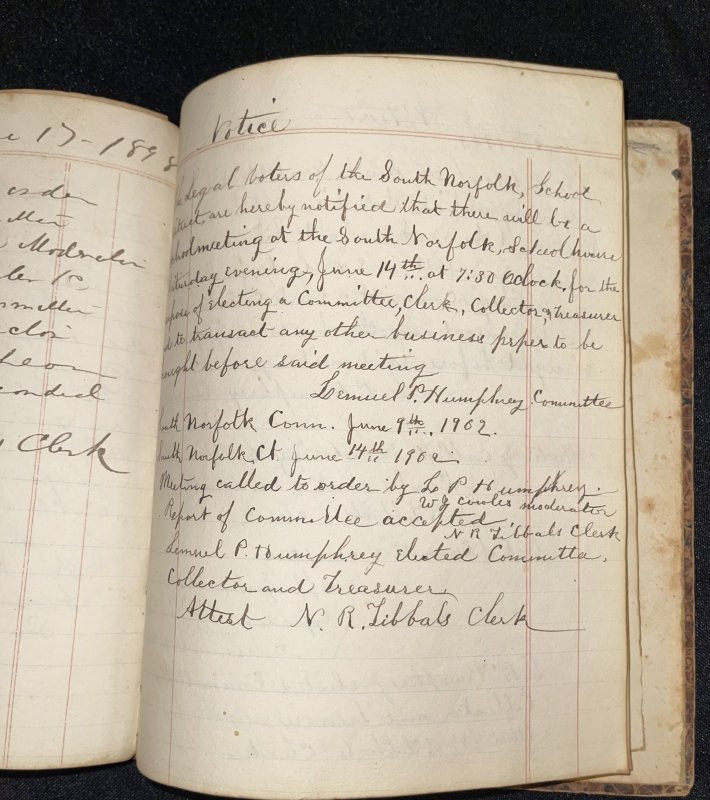 17-1898
Moderator
Clerk
Notice
Legal Voters of the South Norfolk, School
are hereby notified that there will be a
meeting at the South Norfolk, School house
evening, June 14th at 7:30 Oclock, for the
of Electing a Committee, Clerk, Collector, & Treasurer
to transact any other business prper to be
before said meeting
Lemuel P. Humphrey Committee
Norfolk Conn. June 9th, 1902.
Norfolk Ct June 14th 1902
Meeting called to order by L P Humphrey.
W J Cowles moderator
Report of Committee accepted
N R Tibbals Clerk
Lemuel P. Humphrey Elected Committa,
Collector and Treasurer
Attest N. R. Tibbals Clerk